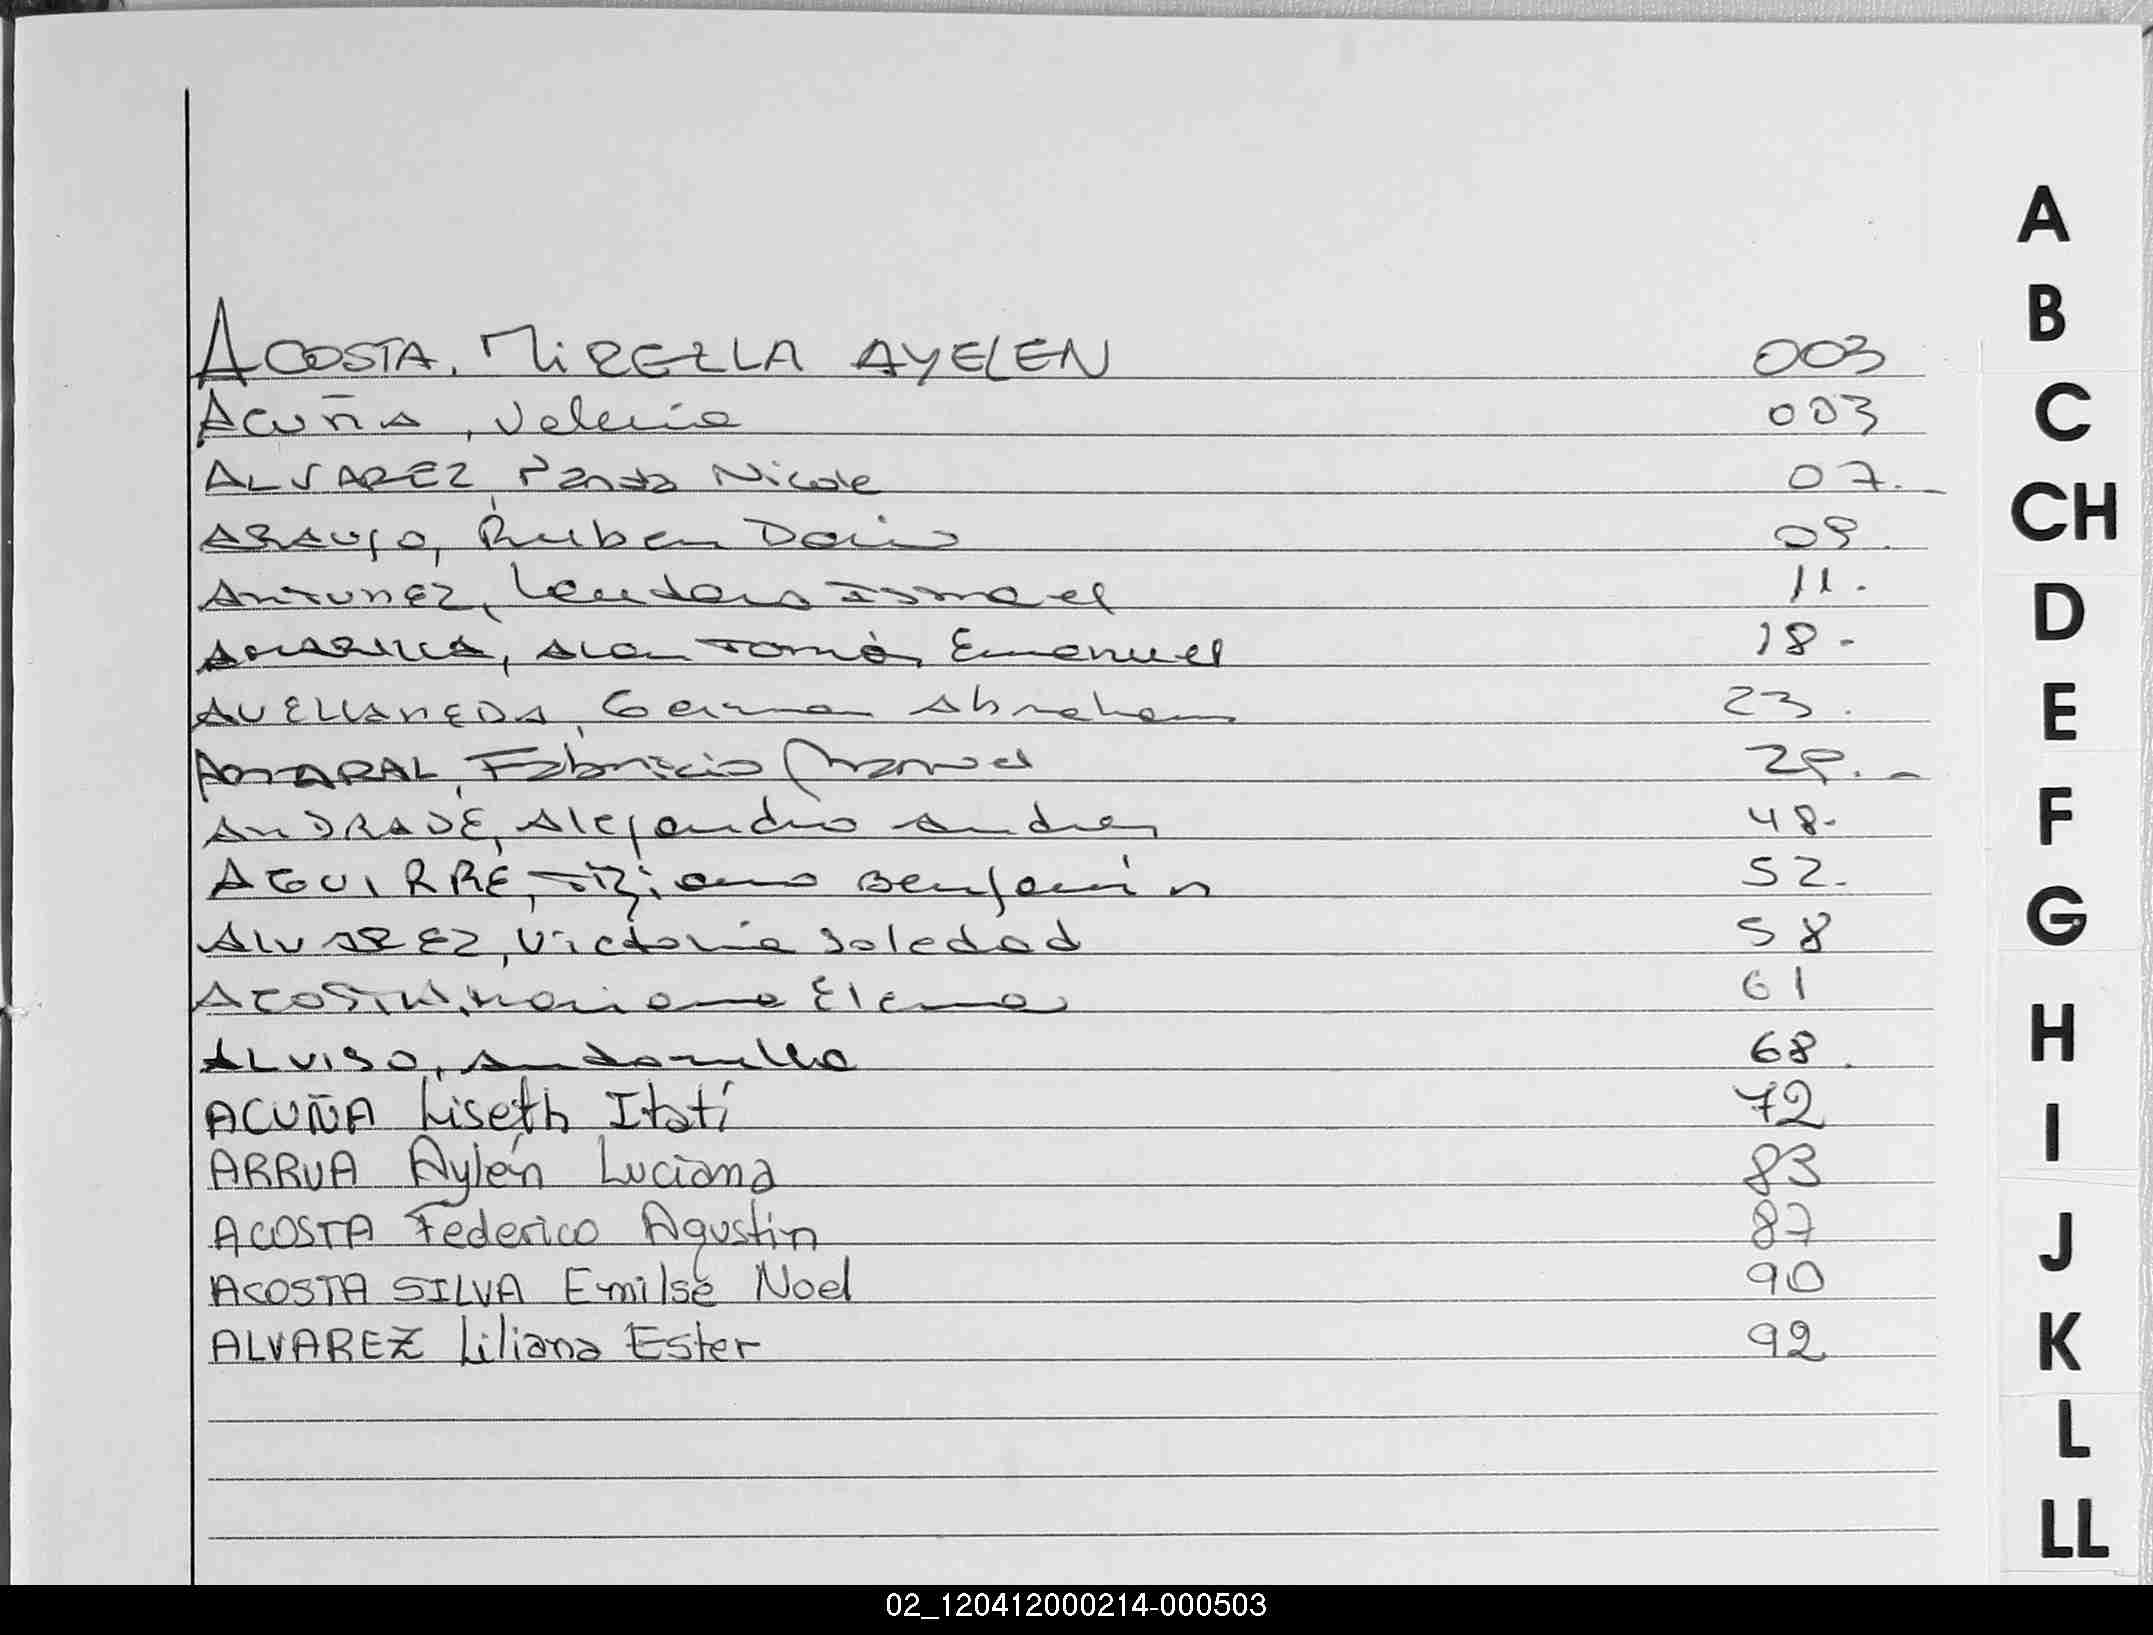 ACOSTA, MIRELLA AYELEN 003
ACUÑA, Valeria 003
ALVAREZ, Nicole 07.-
ARAUJO, Ruben Dario 09.
ANTUNEZ, Leandaro Ismael 11.
AMARILLA, Alan Tomás Emanuel 18-
AVELLANEDA, German Abraham 23.
AMARAL, Fabricio Manuel 29.-
ANDRADE, Alejandro Andres 48-
AGUIRRE, Tiziano Benjamín 52.
ALVAREZ, Victoria Soledad 58
ACOSTA, Mariana Elena 61
ALVISO, 68.
ACUÑA Liseth Itatí 72
ARRUA Aylén Luciana 83
ACOSTA Federico Agustín 87
ACOSTA SILVA Emilse Noel 90
ALVAREZ Liliana Ester 92
A
B
C
CH
D
E
F
G
H
I
J
K
L
LL
02_120412000214-000503